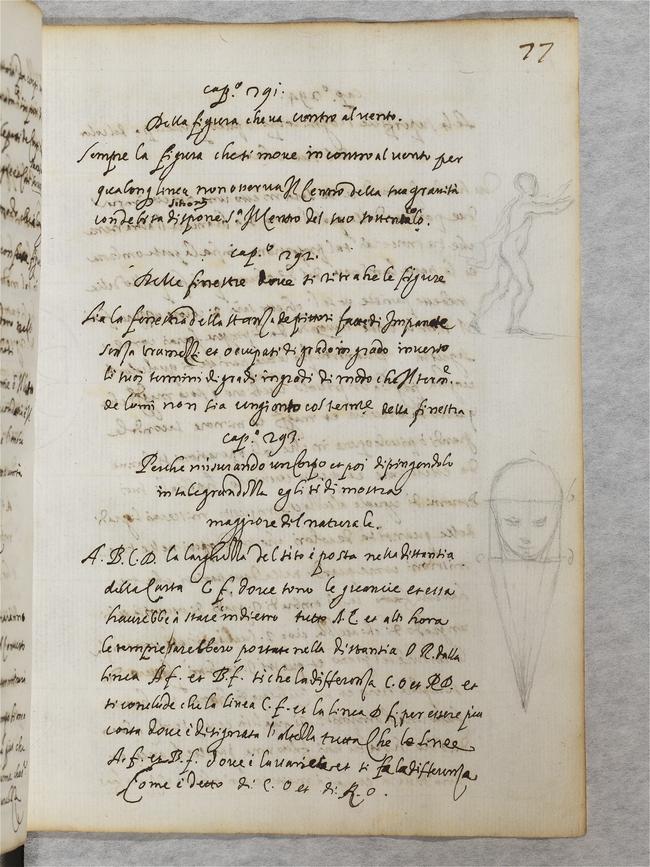 77
cap.º 291.
Della figura che va contro al vento.
Sempre la figura che si move incontro al vento per
qualonq linea non osserva il Centro della sua gravità
con debita dispone sitione s.ª il Centro del suo sostentaculo.
cap.º 292.
Delle finestre dove si ritrahe le figure
Sia la finestra della stanza de pittori fatta di Impanate
senza tramezzi et occupati di grado in grado inverso
li suoi termini di gradi in gradi di modo che il term.º
de lumi non sia congionto col termº della finestra
cap.º 293.
Perche misurando un Corpo et poi dipingendolo
in tale grandezza egli si dimostra
maggiore del naturale.
A. B. C. D. la larghezza del sito è posta nella distantia
della Carta C f. dove sono le guancie et essa
haurebbe à stare indietro tutto A. C et all hora
le tempie sarebbero portate nella distantia O R. dalla
linea A f. et B. f. si che la differenza C. O et R D. et
si conclude che la linea C. f. et la linea D f. per essere piu
corta
A. f. et B. f. dove è la varietà et si fa la differenza
Come è detto di C. O et di R. D.
b